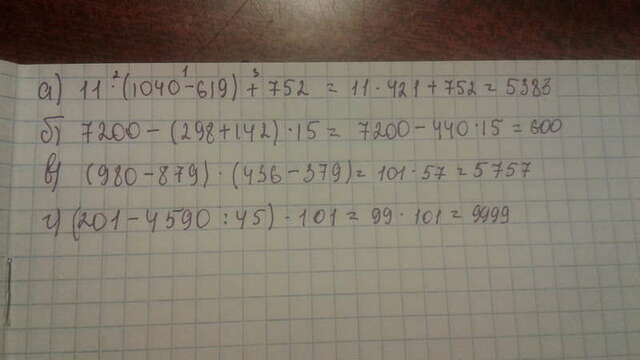 а) 11 ·² (1040 -¹ 619) +³ 752 = 11 · 421 + 752 = 5383
б) 7200 - (298 + 142) · 15 = 7200 - 440 · 15 = 600
в) (980 - 879) · (436 - 379) = 101 · 57 = 5757
г) (201 - 4590 : 45) · 101 = 99 · 101 = 9999